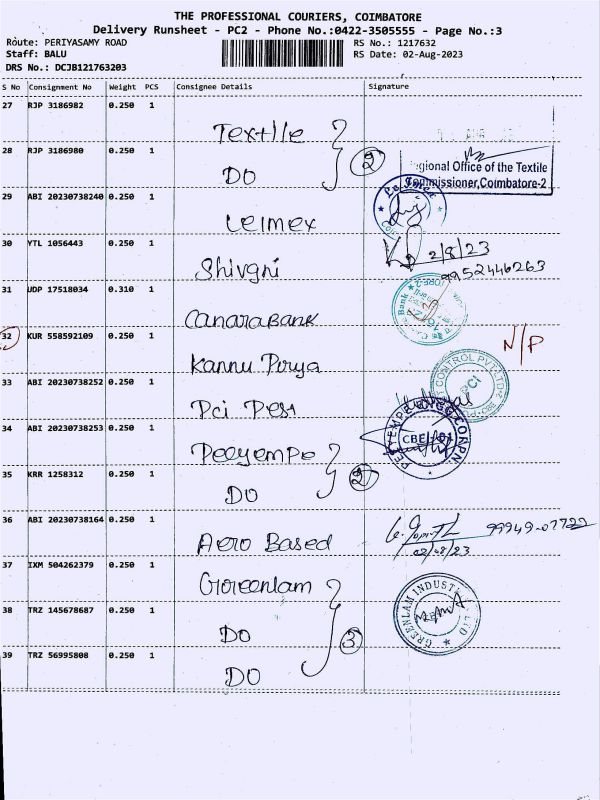 THE PROFESSIONAL COURIERS, COIMBATORE
Delivery Runsheet - PC2 - Phone No.:0422-3505555 - Page No.:3
Route: PERIYASAMY ROAD
RS No.: 1217632
Staff: BALU
RS Date: 02-Aug-2023
DRS No.: DCJB121763203
S No Consignment No Weight PCS Consignee Details Signature
27 RJP 3186982 0.250 1
Textile
28 RJP 3186980 0.250 1
2
DO
Regional Office of the Textile
Commissioner, Coimbatore-2
29 ABI 20230738240 0.250 1
Leimex
30 YTL 1056443 0.250 1
2/8/23
Shivgni
9952446263
31 UDP 17518034 0.310 1
Canarabank
32 KUR 558592109 0.250 1
N/P
Kannu Pirya
33 ABI 20230738252 0.250 1
CONTROL PVT.LTD
Pci Pest
34 ABI 20230738253 0.250 1
CBE
Peeyempe
35 KRR 1258312 0.250 1
2
DO
36 ABI 20230738164 0.250 1
99949-07722
Aero Based
02/08/23
37 IXM 504262379 0.250 1
Greenlam
GREENLAM INDUSTRIES LTD
38 TRZ 145678687 0.250 1
DO
3
39 TRZ 56995808 0.250 1
DO